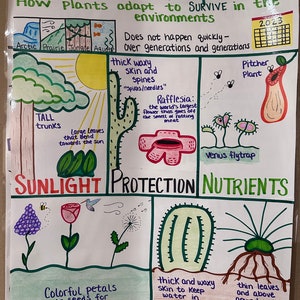 How Plants adapt to SURVIVE in the
environments
Arctic
Prairie
Does not happen quickly-
Over generations and generations
2023
thick waxy
skin and
spines
"quills/needles"
Pitcher
Plant
Rafflesia:
the world's largest
flower that gives off
the smell of rotting
meat
TALL
trunks
Large leaves
that bend
towards the sun
Venus flytrap
SUNLIGHT
PROTECTION
NUTRIENTS
Colorful petals
thick and waxy
skin to keep
water in
thin leaves
and above